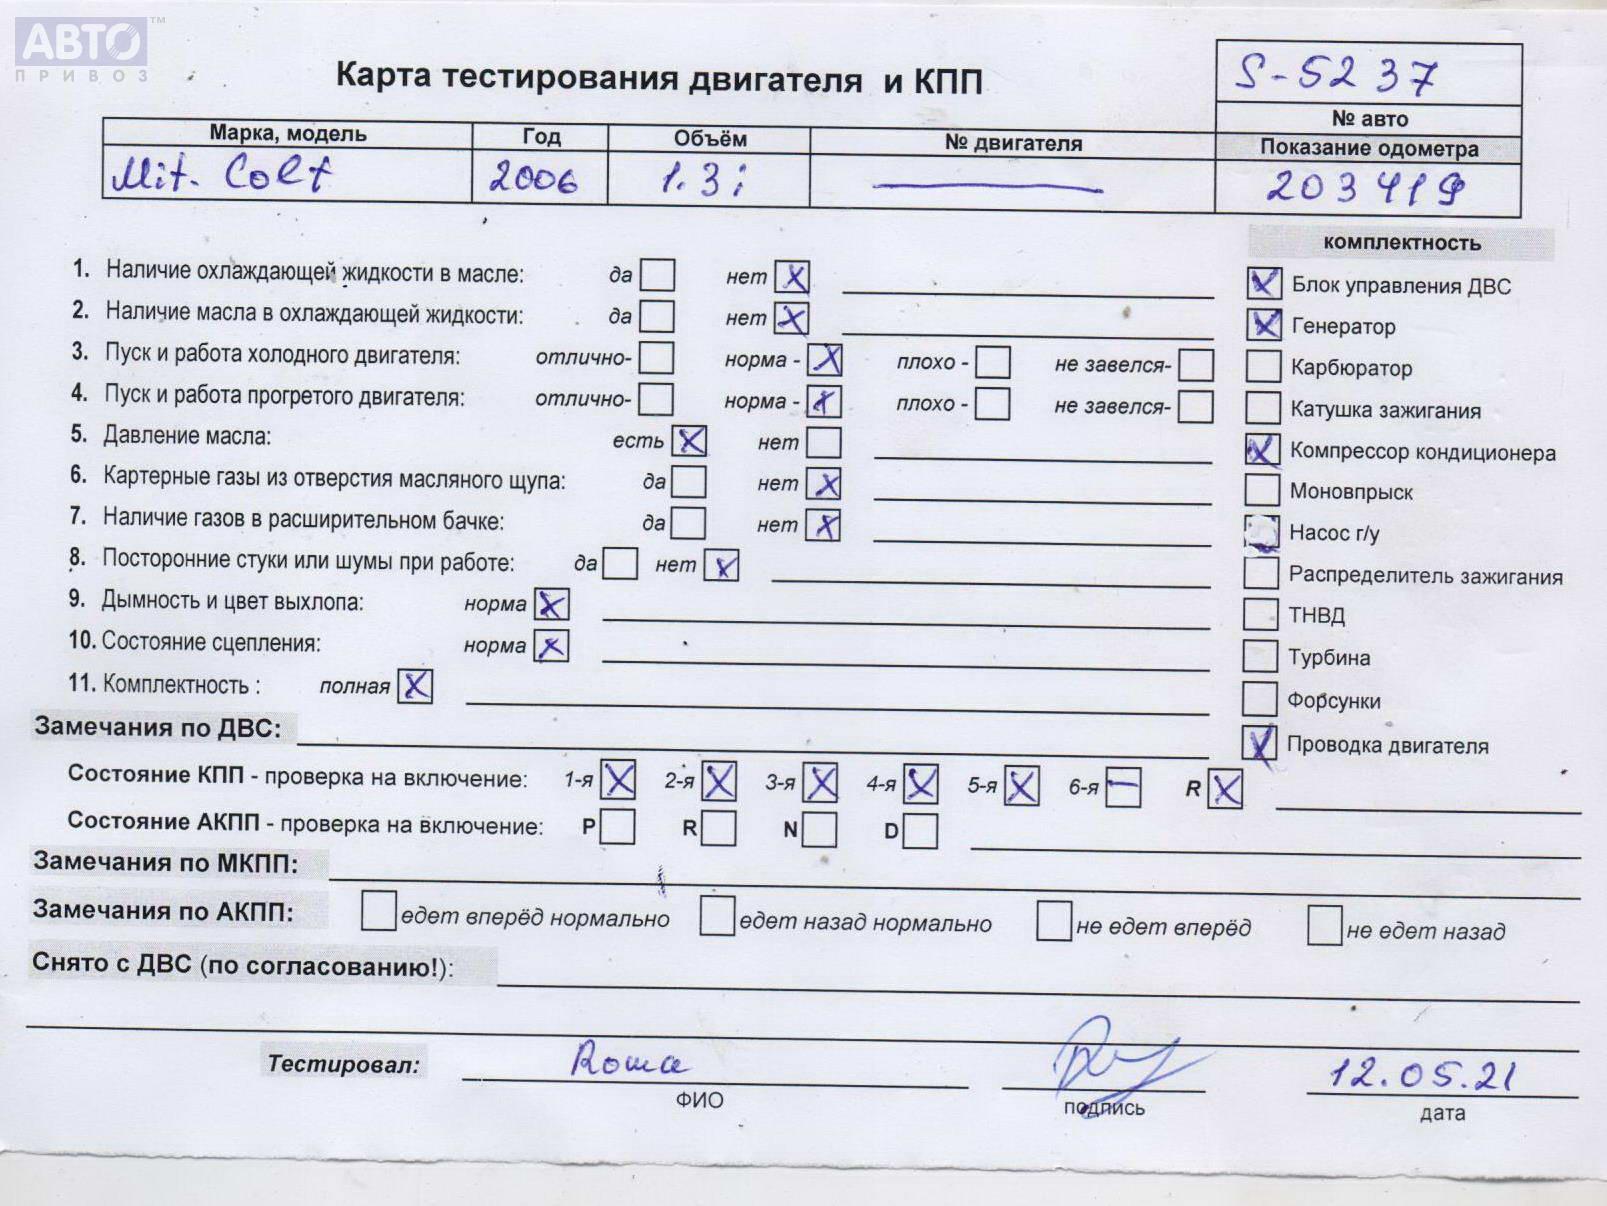 АВТО™
ПРИВОЗ
Карта тестирования двигателя и КПП
S-5237
№ авто
Марка, модель Год Объём № двигателя Показание одометра
Mit. Colt 2006 1.3i 203419
комплектность
1. Наличие охлаждающей жидкости в масле: да нет X
Блок управления ДВС
2. Наличие масла в охлаждающей жидкости: да нет X
Генератор
3. Пуск и работа холодного двигателя: отлично- норма - X плохо - не завелся-
Карбюратор
4. Пуск и работа прогретого двигателя: отлично- норма - X плохо - не завелся-
Катушка зажигания
5. Давление масла: есть X нет
Компрессор кондиционера
6. Картерные газы из отверстия масляного щупа: да нет X
Моновпрыск
7. Наличие газов в расширительном бачке: да нет X
Насос г/у
8. Посторонние стуки или шумы при работе: да нет X
Распределитель зажигания
9. Дымность и цвет выхлопа: норма X
ТНВД
10. Состояние сцепления: норма X
Турбина
11. Комплектность : полная X
Форсунки
Замечания по ДВС:
Проводка двигателя
Состояние КПП - проверка на включение: 1-я X 2-я X 3-я X 4-я X 5-я X 6-я – R X
Состояние АКПП - проверка на включение: P R N D
Замечания по МКПП:
Замечания по АКПП: едет вперёд нормально едет назад нормально не едет вперёд не едет назад
Снято с ДВС (по согласованию!):
Тестировал: Roma 12.05.21
ФИО подпись дата